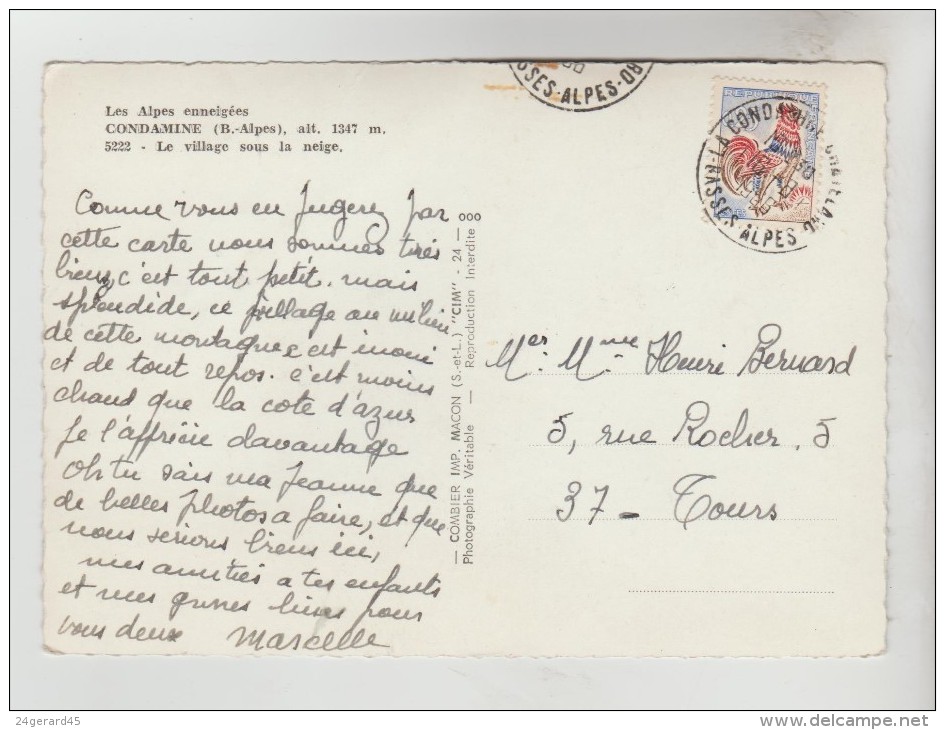 Les Alpes enneigées
CONDAMINE (B.-Alpes), alt. 1347 m.
5222 - Le village sous la neige.
Comme vous en Jugerez par
cette carte nous sommes très
bien, c'est tout petit. mais
splendide, ce village au milieu
de cette montagne est inoui
et de tout repos. c'est moins
chaud que la cote d'azur
Je l'apprécie davantage
Oh tu sais ma Jeanne que
de belles photos a faire, et que
nous serions biens ici,
mes amitiés a tes enfants
et mes grosses bises pour
vous deux Marcelle
— COMBIER IMP. MACON (S.-et-L.) "CIM" - 24 — ooo
Photographie Véritable — Reproduction Interdite
SSES-ALPES-
REPUBLIQUE
LA CONDAMINE CHATELARD
BASSES-ALPES
Mer Mme Henri Bernard
5, rue Rocher. 5
37 - Tours
24gerard45
www.delcampe.net